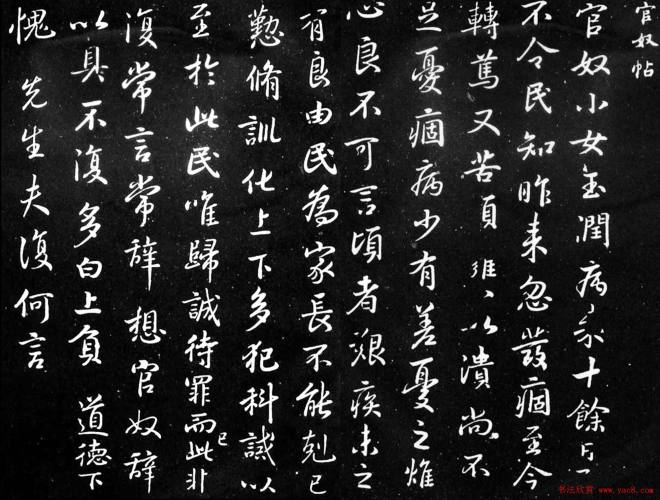 官奴帖
官奴小女玉潤病來十餘日
不令民知昨來忽發痼至今
轉篤又苦頭癰以潰尚不
足憂痼病少有差憂之燋
心良不可言頃者艱疾未之
有良由民為家長不能尅己
懃脩訓化上下多犯科誡以
至於此民唯歸誠待罪而已此非
復常言常辭想官奴辭
以具不復多白上負道德下
愧先生夫復何言
书法欣赏 www.yac8.com